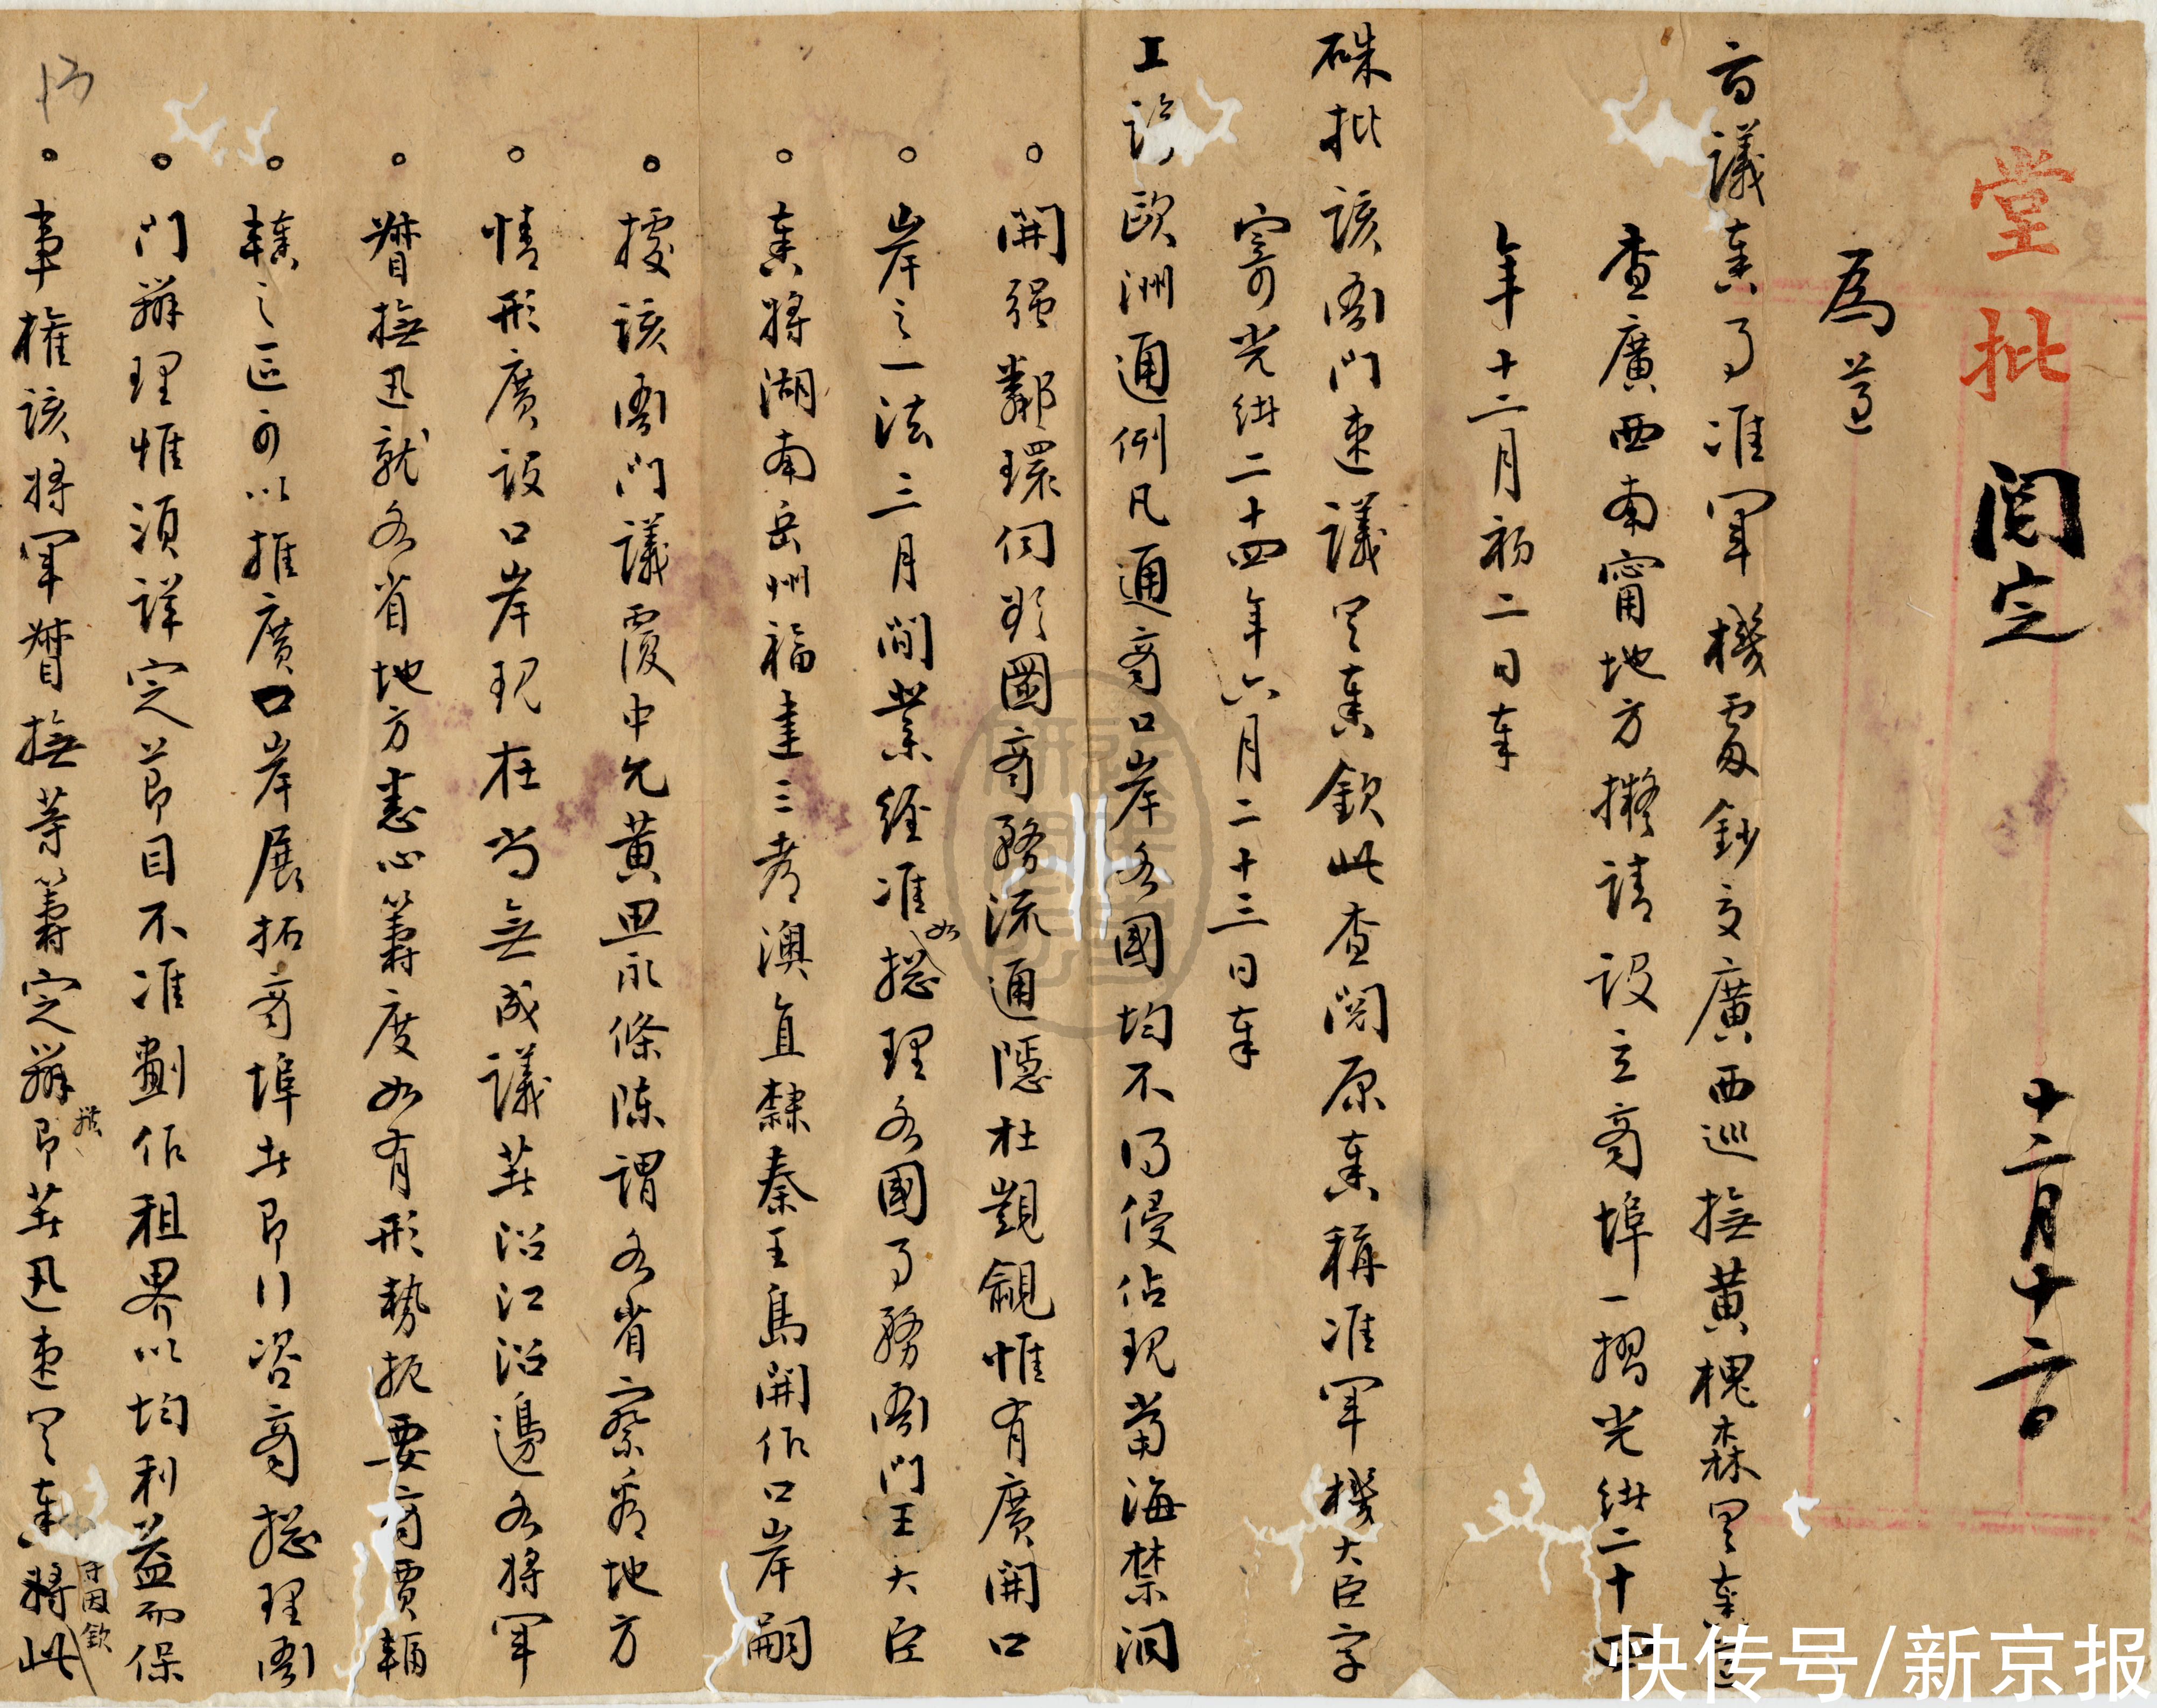 堂批 閱定 十二月十二日
為遵
旨議奏事准軍機處鈔交廣西巡撫黃槐森具奏
查廣西南甯地方擬請設立商埠一摺光緒二十四
年十二月初二日奉
硃批該衙門速議具奏欽此查閱原奏稱准軍機大臣字
寄光緒二十四年六月二十三日奉
上諭歐洲通例凡通商口岸各國均不得侵佔現當海禁洞
開強鄰環伺欲圖商務流通隱杜覬覦惟有廣開口
岸之一法三月間業經准如總理各國事務衙門王大臣
奏將湖南岳州福建三都澳直隸秦王島開作口岸嗣
據該衙門議覆中允黃思永條陳謂各省察看地方
情形廣設口岸現在尚無成議著沿江沿邊各將軍
督撫迅就各省地方悉心籌度如有形勢扼要商賈輻
轄之區可以推廣口岸展拓商埠者即行咨商總理衙
門辦理惟須詳定節目不准劃作租界以均利益而保
事權該將軍督撫等籌定辦即著迅速具奏將此
等因欽
快传号/新京报